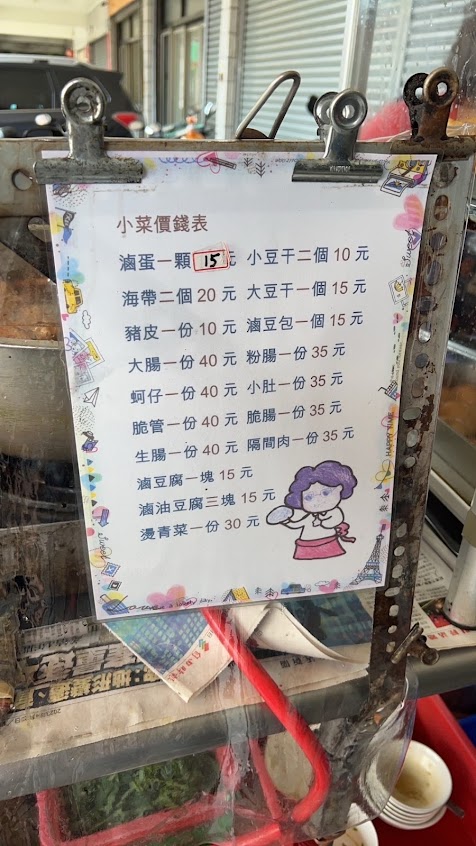 小菜價錢表
滷蛋一顆 15 元 小豆干二個 10 元
海帶二個 20 元 大豆干一個 15 元
豬皮一份 10 元 滷豆包一個 15 元
大腸一份 40 元 粉腸一份 35 元
蚵仔一份 40 元 小肚一份 35 元
脆管一份 40 元 脆腸一份 35 元
生腸一份 40 元 隔間肉一份 35 元
滷豆腐一塊 15 元
滷油豆腐三塊 15 元
燙青菜一份 30 元